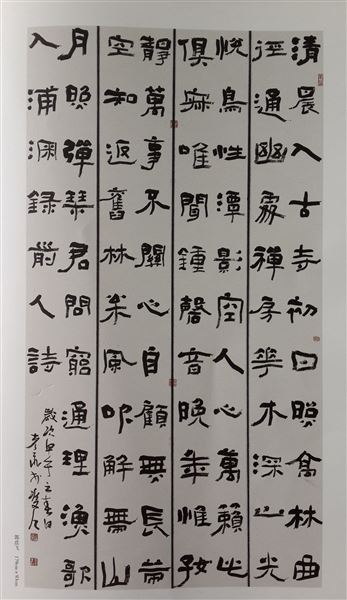 清晨入古寺初日照高林曲
徑通幽處禪房花木深山光
悅鳥性潭影空人心萬籟此
俱寂唯聞鍾磬音晚年惟好
靜萬事不關心自顧無長策
空知返舊林松風吹解帶山
月照彈琴君問窮通理漁歌
入浦深録前人詩
歲次甲午之春日